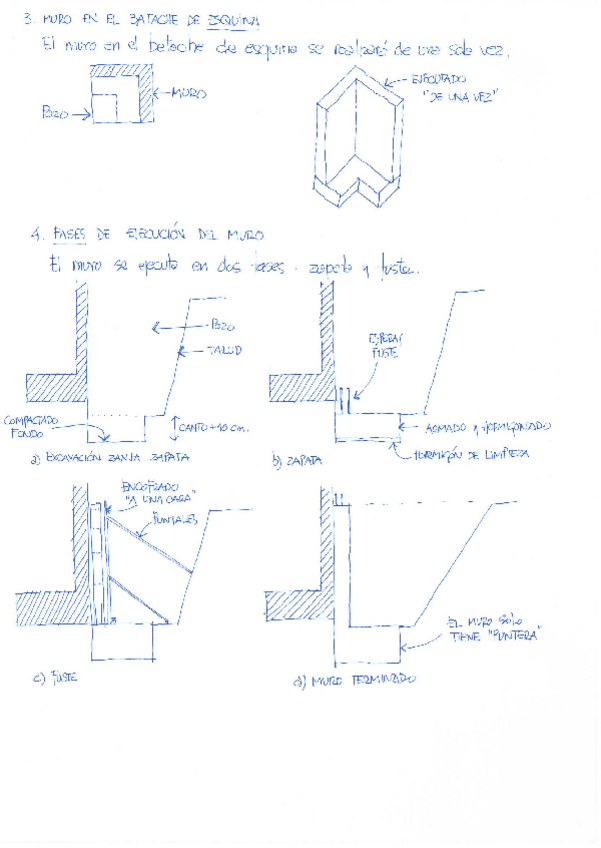 3. MURO EN EL BATACHE DE ESQUINA
El muro en el batache de esquina se realizará de una sola vez.
MURO
POZO
EJECUTADO
"DE UNA VEZ"
4. FASES DE EJECUCIÓN DEL MURO
El muro se ejecuta en dos fases: zapata y fuste.
POZO
TALUD
COMPACTADO
FONDO
CANTO+10 cm.
a) EXCAVACIÓN ZANJA ZAPATA
ESPERAS
FUSTE
ARMADO y HORMIGONADO
HORMIGÓN DE LIMPIEZA
b) ZAPATA
ENCOFRADO
"A UNA CARA"
PUNTALES
c) FUSTE
EL MURO SÓLO
TIENE "PUNTERA"
d) MURO TERMINADO